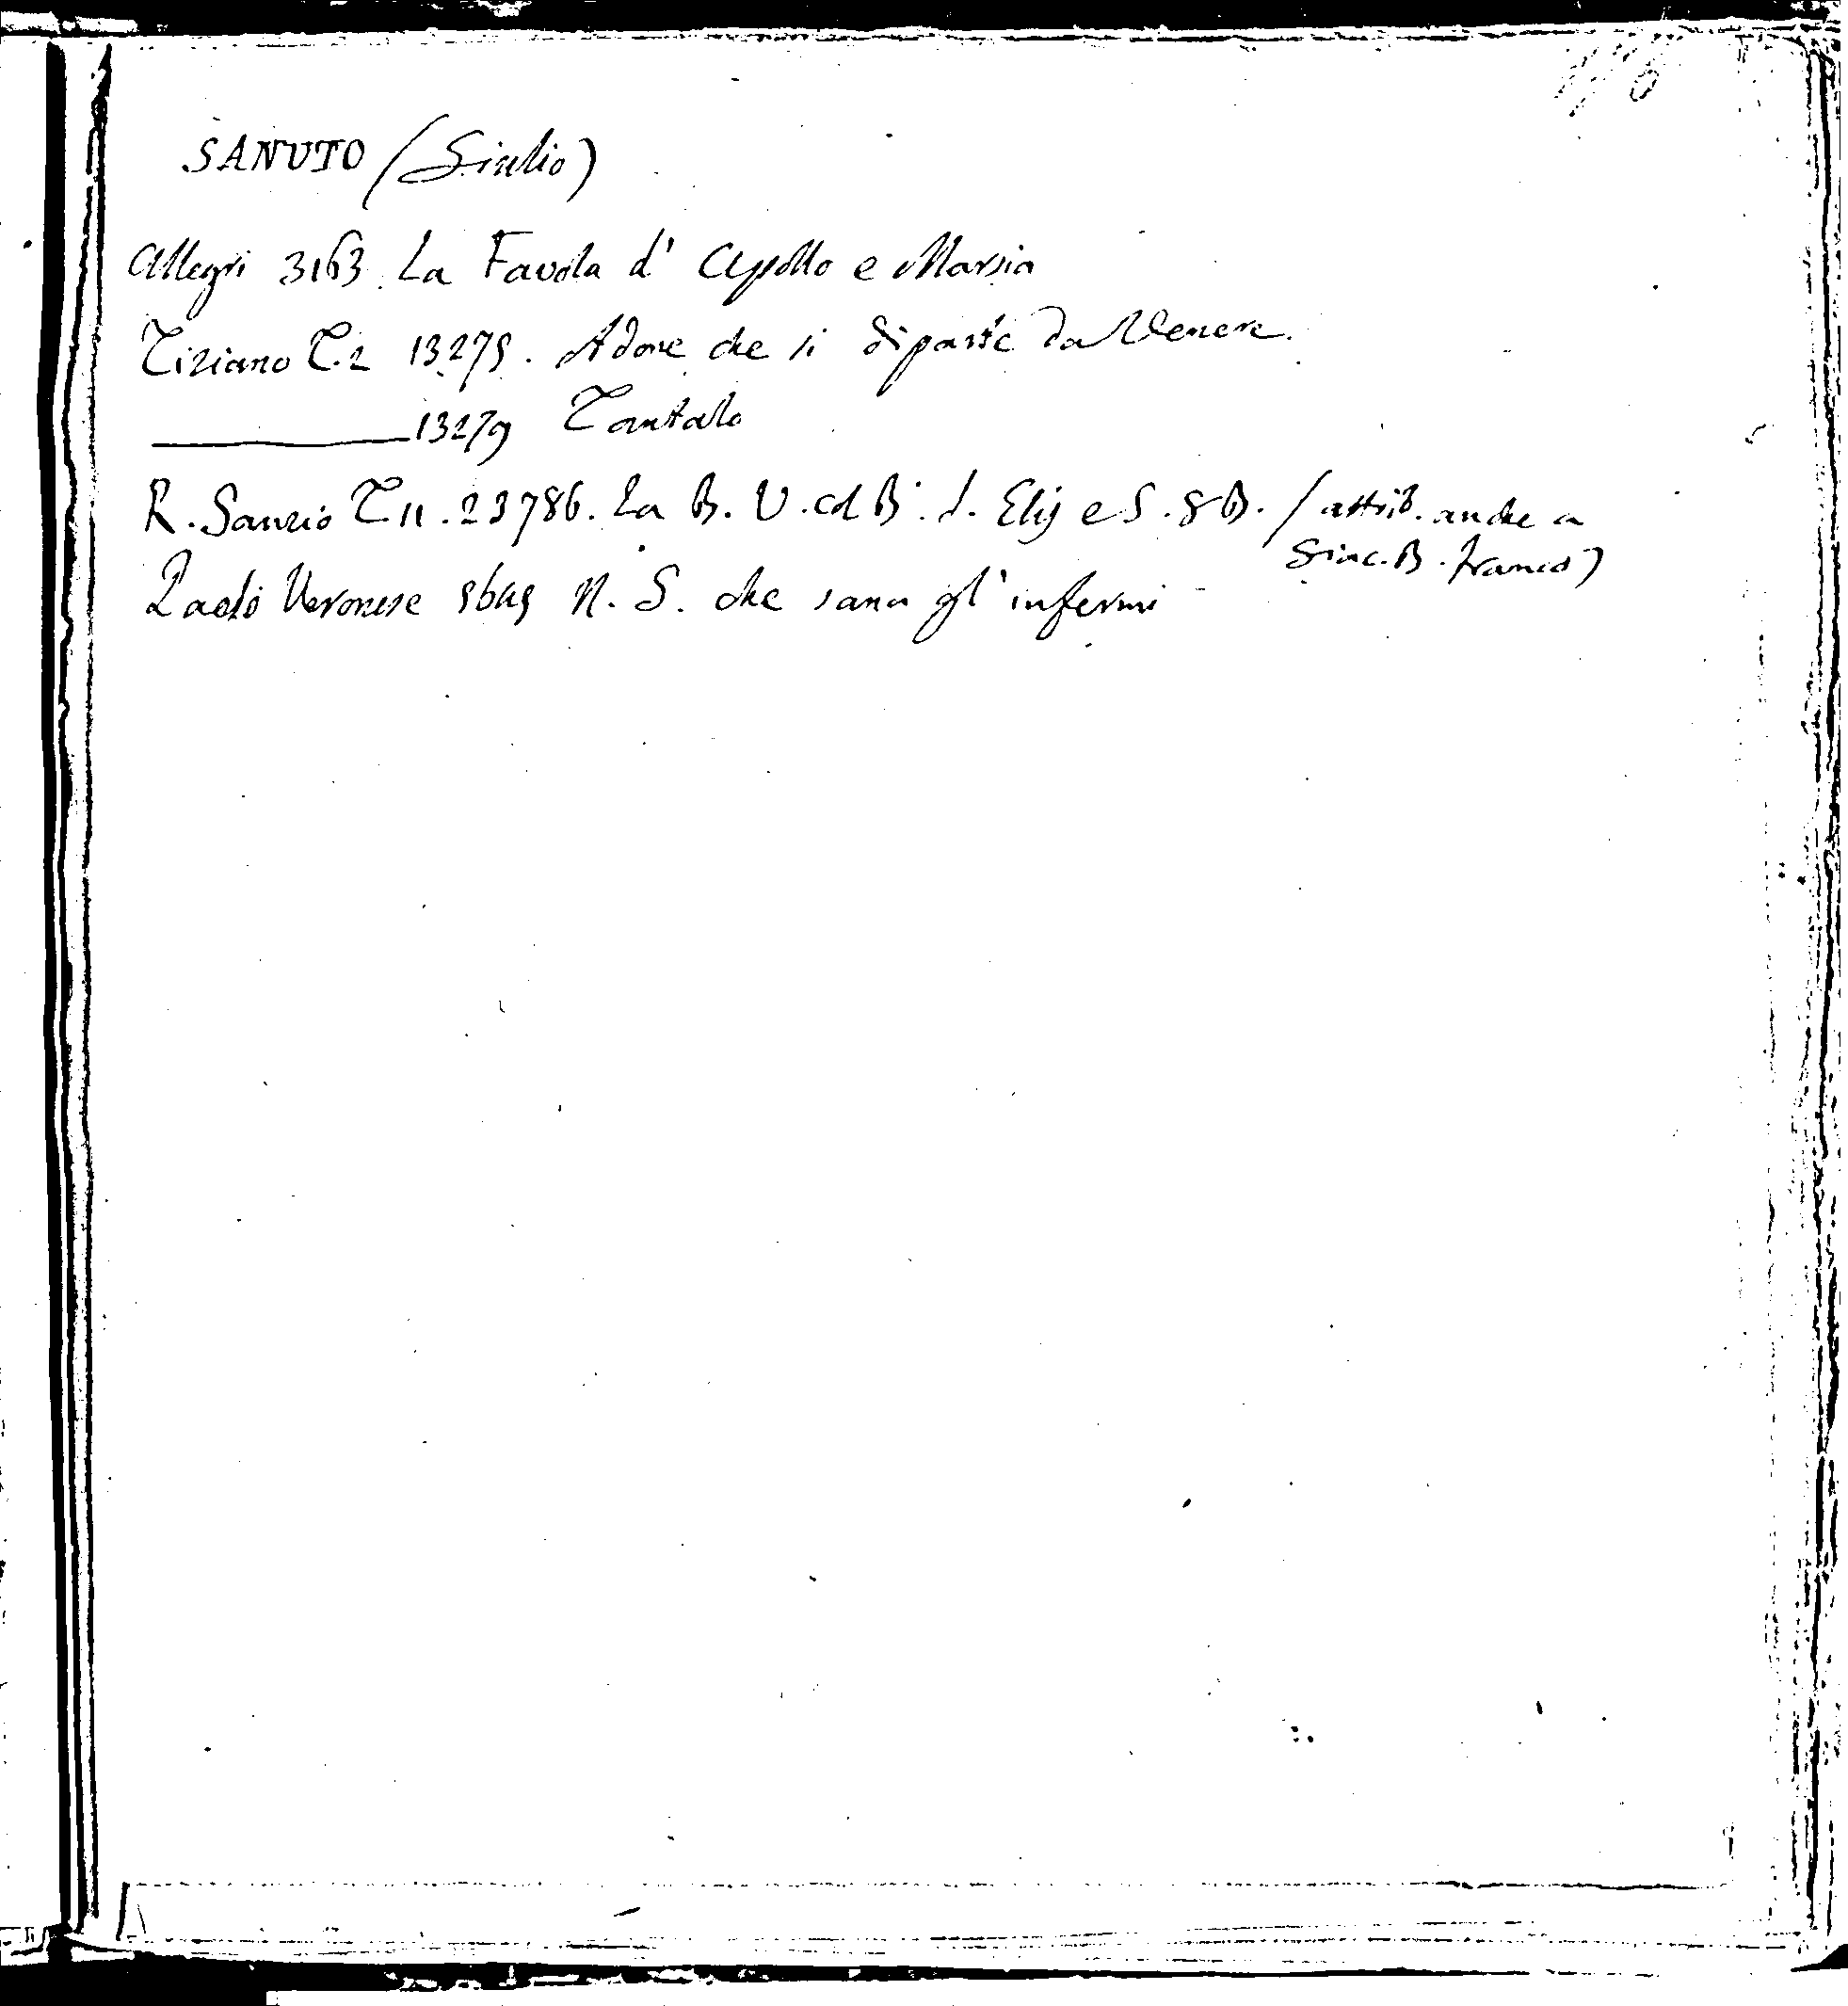 SANUTO (Giulio)
Allegri 3163. La Favola d' Apollo e Marsia
Tiziano T.2 13275. Adone che si diparte da Venere.
13279 Tantalo
R. Sanzio T. 11. 23786. La B. V. col B. S. Elis e S. G B. (attrib. anche a
Giac. B. franco)
Paolo Veronese N. S. che sana gl' infermi